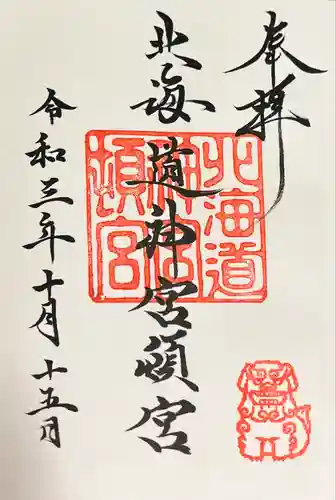 奉拝
北海道神宮頓宮
北海道
神宮
頓宮
令和三年十月十五月